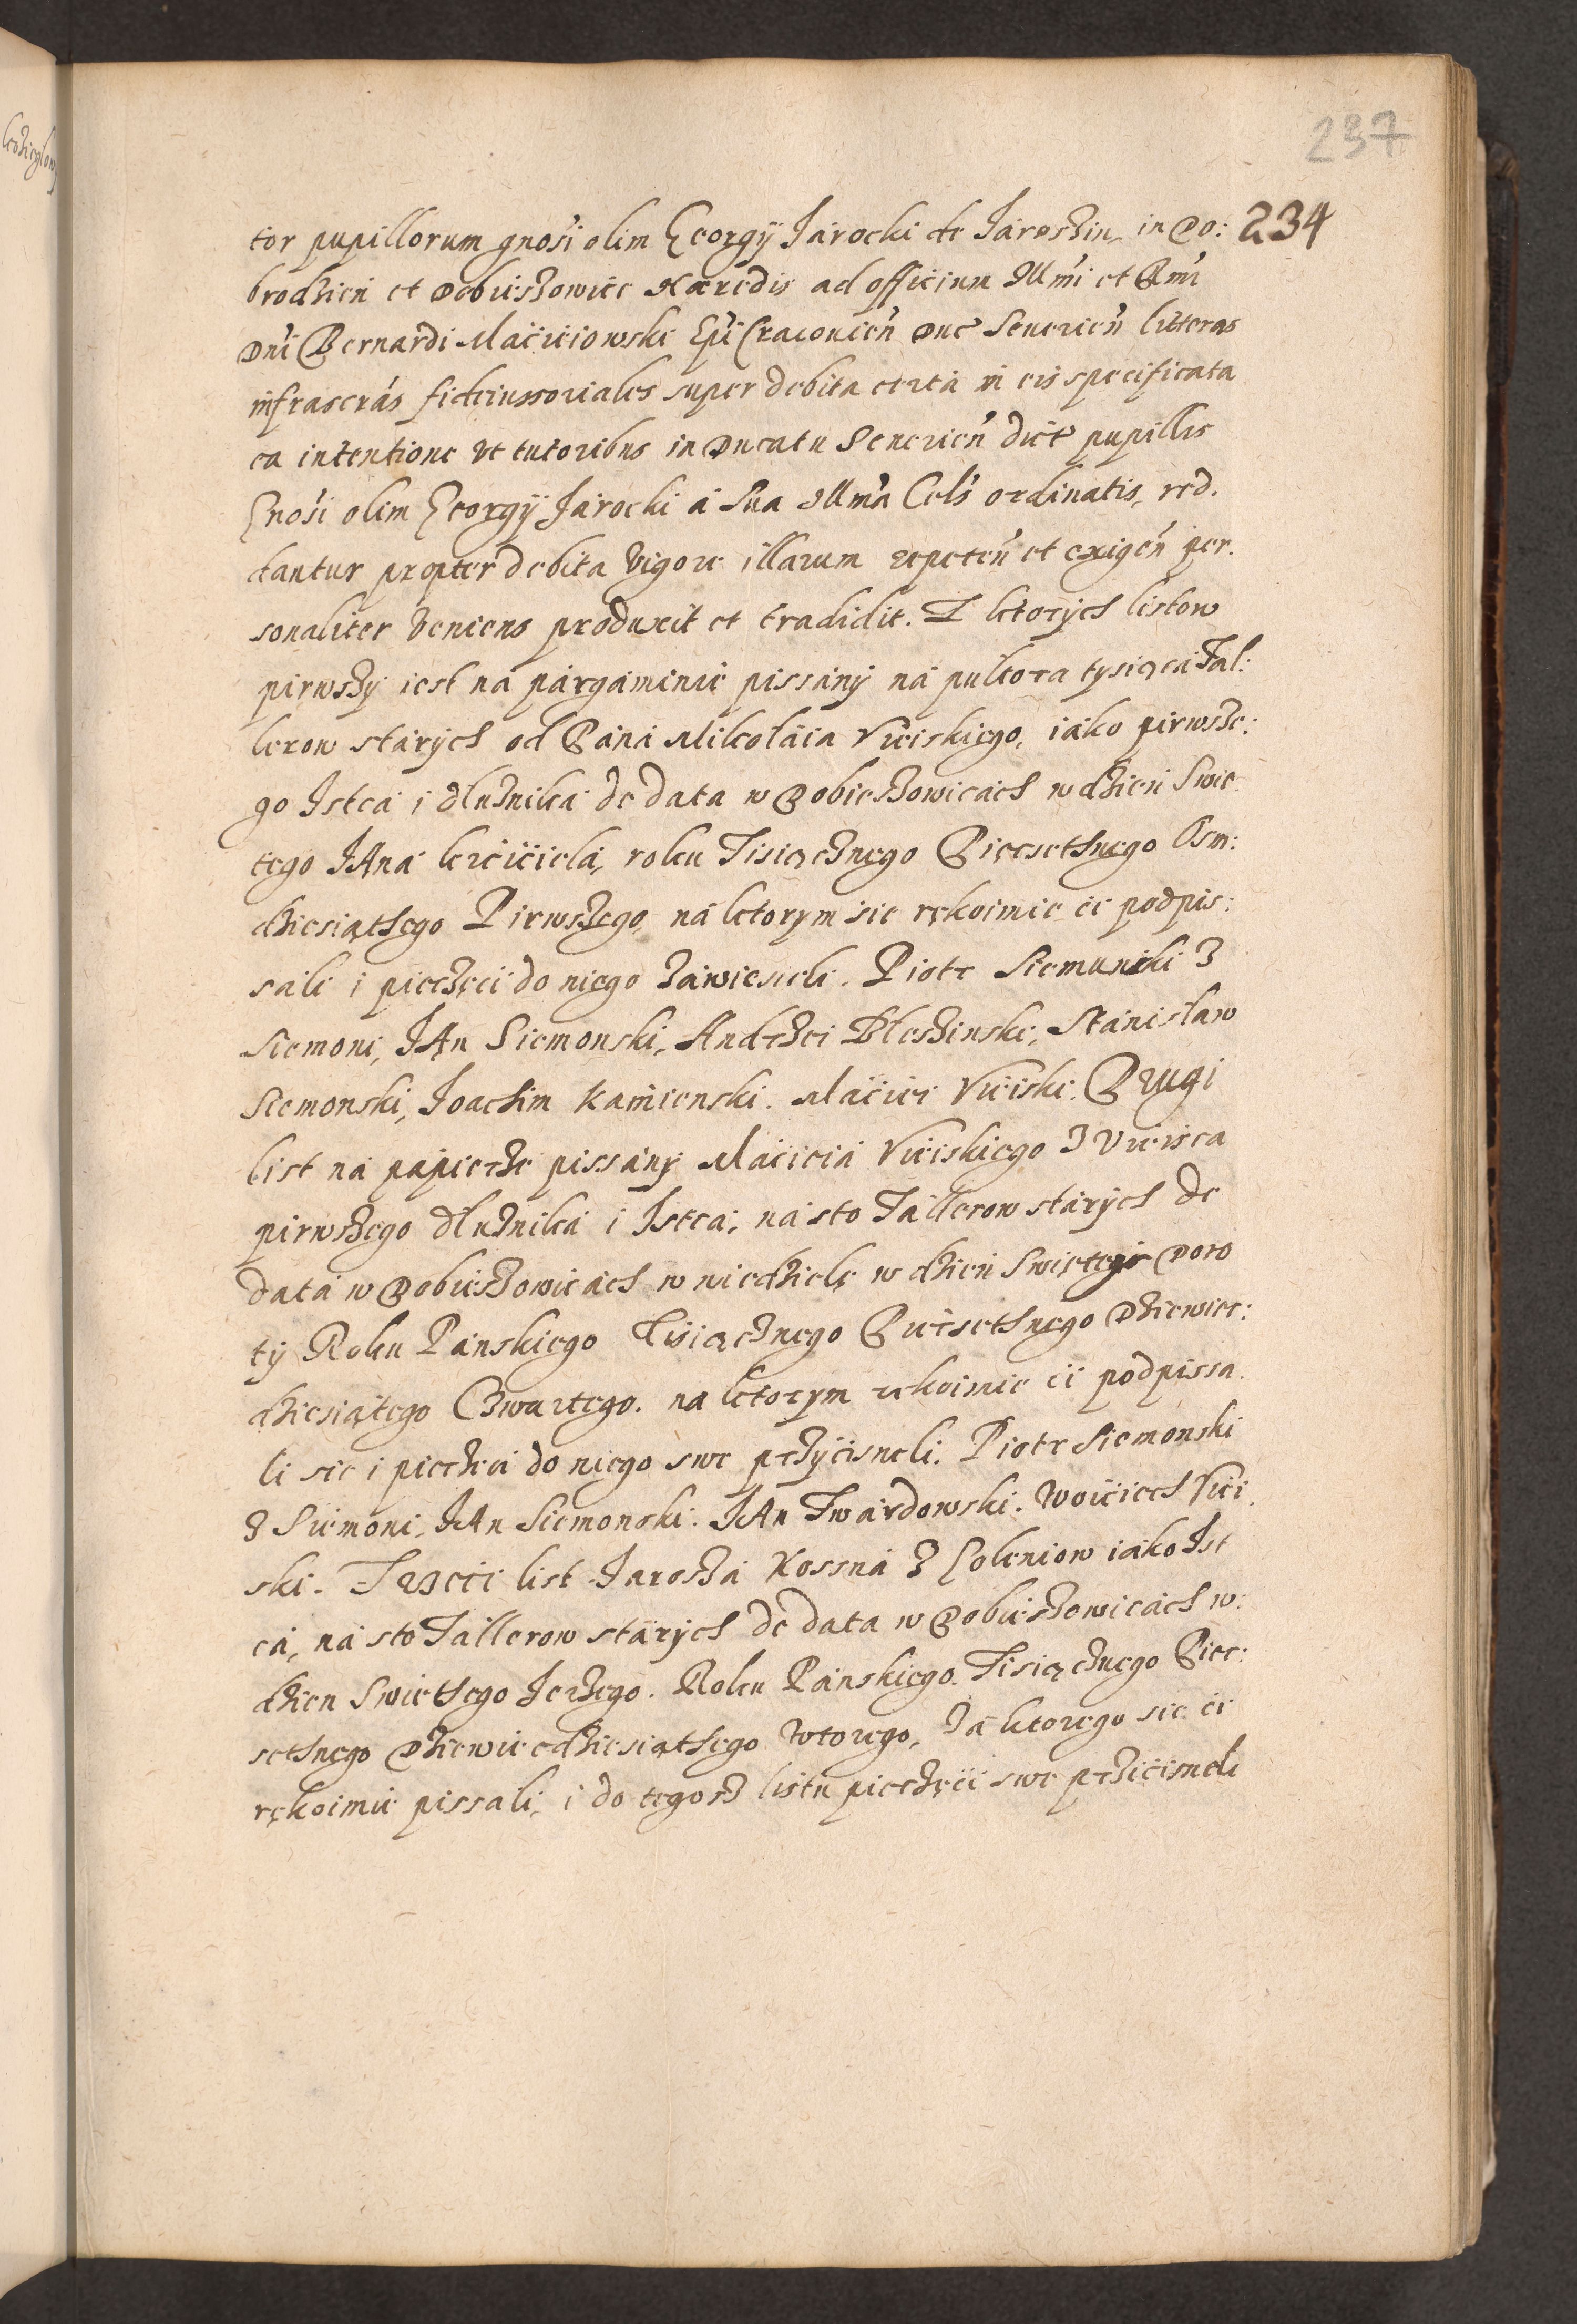 237
234
tor pupillorum gnosi olim Georgÿ Jarocki de Jaroszin, in Do:
brodzień et Dobieszowice Hæredis ad officium Illmi et Rmi
Dni Bernardi Macieiowski Epi Cracovień Duc Severień litteras
infrascrás fideiussoriales super debita certa in eis specificata
ea intentione ut tutoribus in Ducatu Severień dict pupillis
Gnosi olim Georgÿ Jarocki á Sua Illma Cels ordinatis, red.
dantur propter debita vigore illarum repeteń et exigeń per.
sonaliter veniens produxit et tradidit. Z ktorych listow
pirwszy iest ná párgaminie pissány ná pultora tysiącá Tal:
lerow starych od Páná Mikołáia Vieiskiego, iáko pirwsze:
go Istcá i dłużniká de data w Dobieszowicách w dzień Swie
tego JAná krzciciela, roku Tisiącznego Pięcsethnego Osm:
dziesiąthego Pirwszego, ná ktorym sie rękoimie ci podpis:
sali i pieczęci do niego záwiesieli. Piotr Siemunski z
Siemoni, JAn Siemonski, Andrzei Bleszinski, Stánisław
Siemonski, Joachim Kamienski. Maciei Vieiski. Drugi
list ná papierze pissány Macieiá Vieiskiego z Vieisca
pirwszego dłużniká i Istcá, ná sto Tállerow stárych de
datá w Dobieszowicách w niedzielę w dzień Swiętey Doro
ty Roku Pánskiego Tisiącznego Pięcsethnego Dziewięc:
dziesiątego Czwartego. na ktorym rekoimie ci podpissa.
li sie i pieczęci do niego swe przycisneli. Piotr Siemonski
z Siemoni, JAn Siemonski. JAn Twárdowski. Woiciech Viei.
ski. Trzeci list Jároszá Kossná z Goleniow iáko Ist
cá, ná sto Tállerow stárych de data w Dobieszowicách w:
dzien Swiethego Jerzego. Roku Pánskiego. Tisiącznego Piec:
sethnego Dziewiedziesiąthego Wtorego, Zá ktorego sie ci
rękoimie pissali, i do tegosz listu pieczęci swe przicisneli